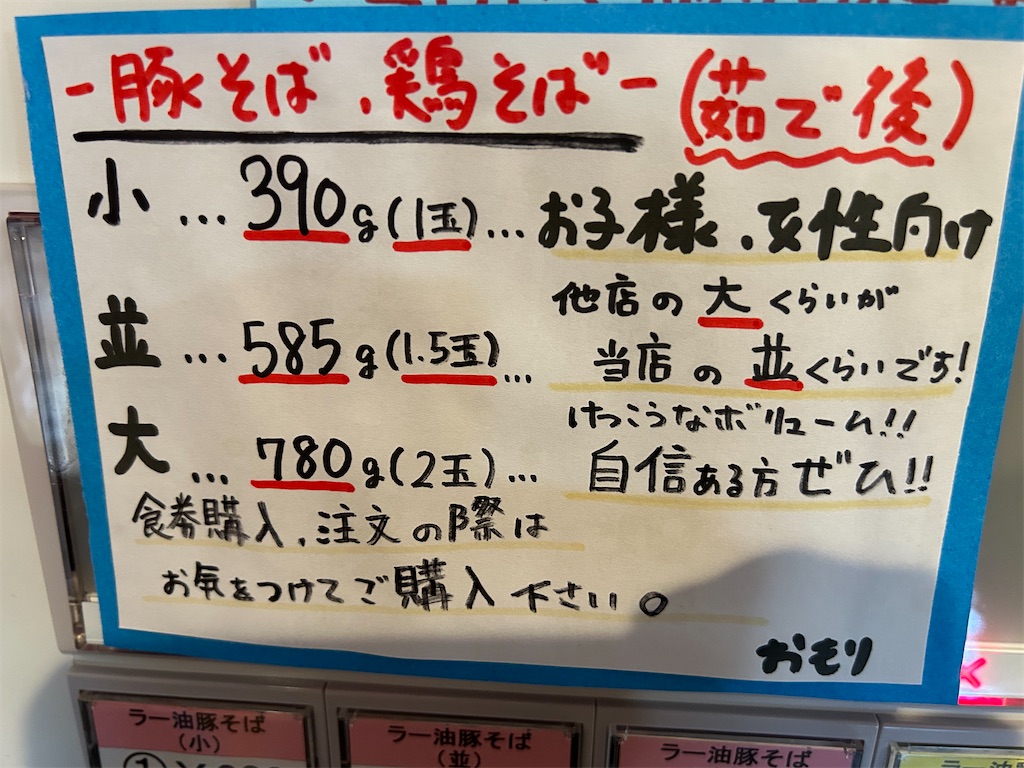 -豚そば、鶏そば-(茹で後)
小…390g(1玉)…お子様、女性向け
並…585g(1.5玉)…他店の大くらいが
当店の並くらいです!
大…780g(2玉)…けっこうなボリューム!!
自信ある方ぜひ!!
食券購入、注文の際は
お気をつけてご購入下さい。
おもり
ラー油豚そば
(小)
ラー油豚そば
(並)
ラー油豚そば